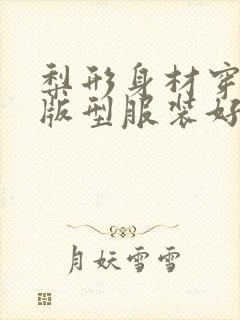 梨形身材穿
版型服装好
月妖雪雪